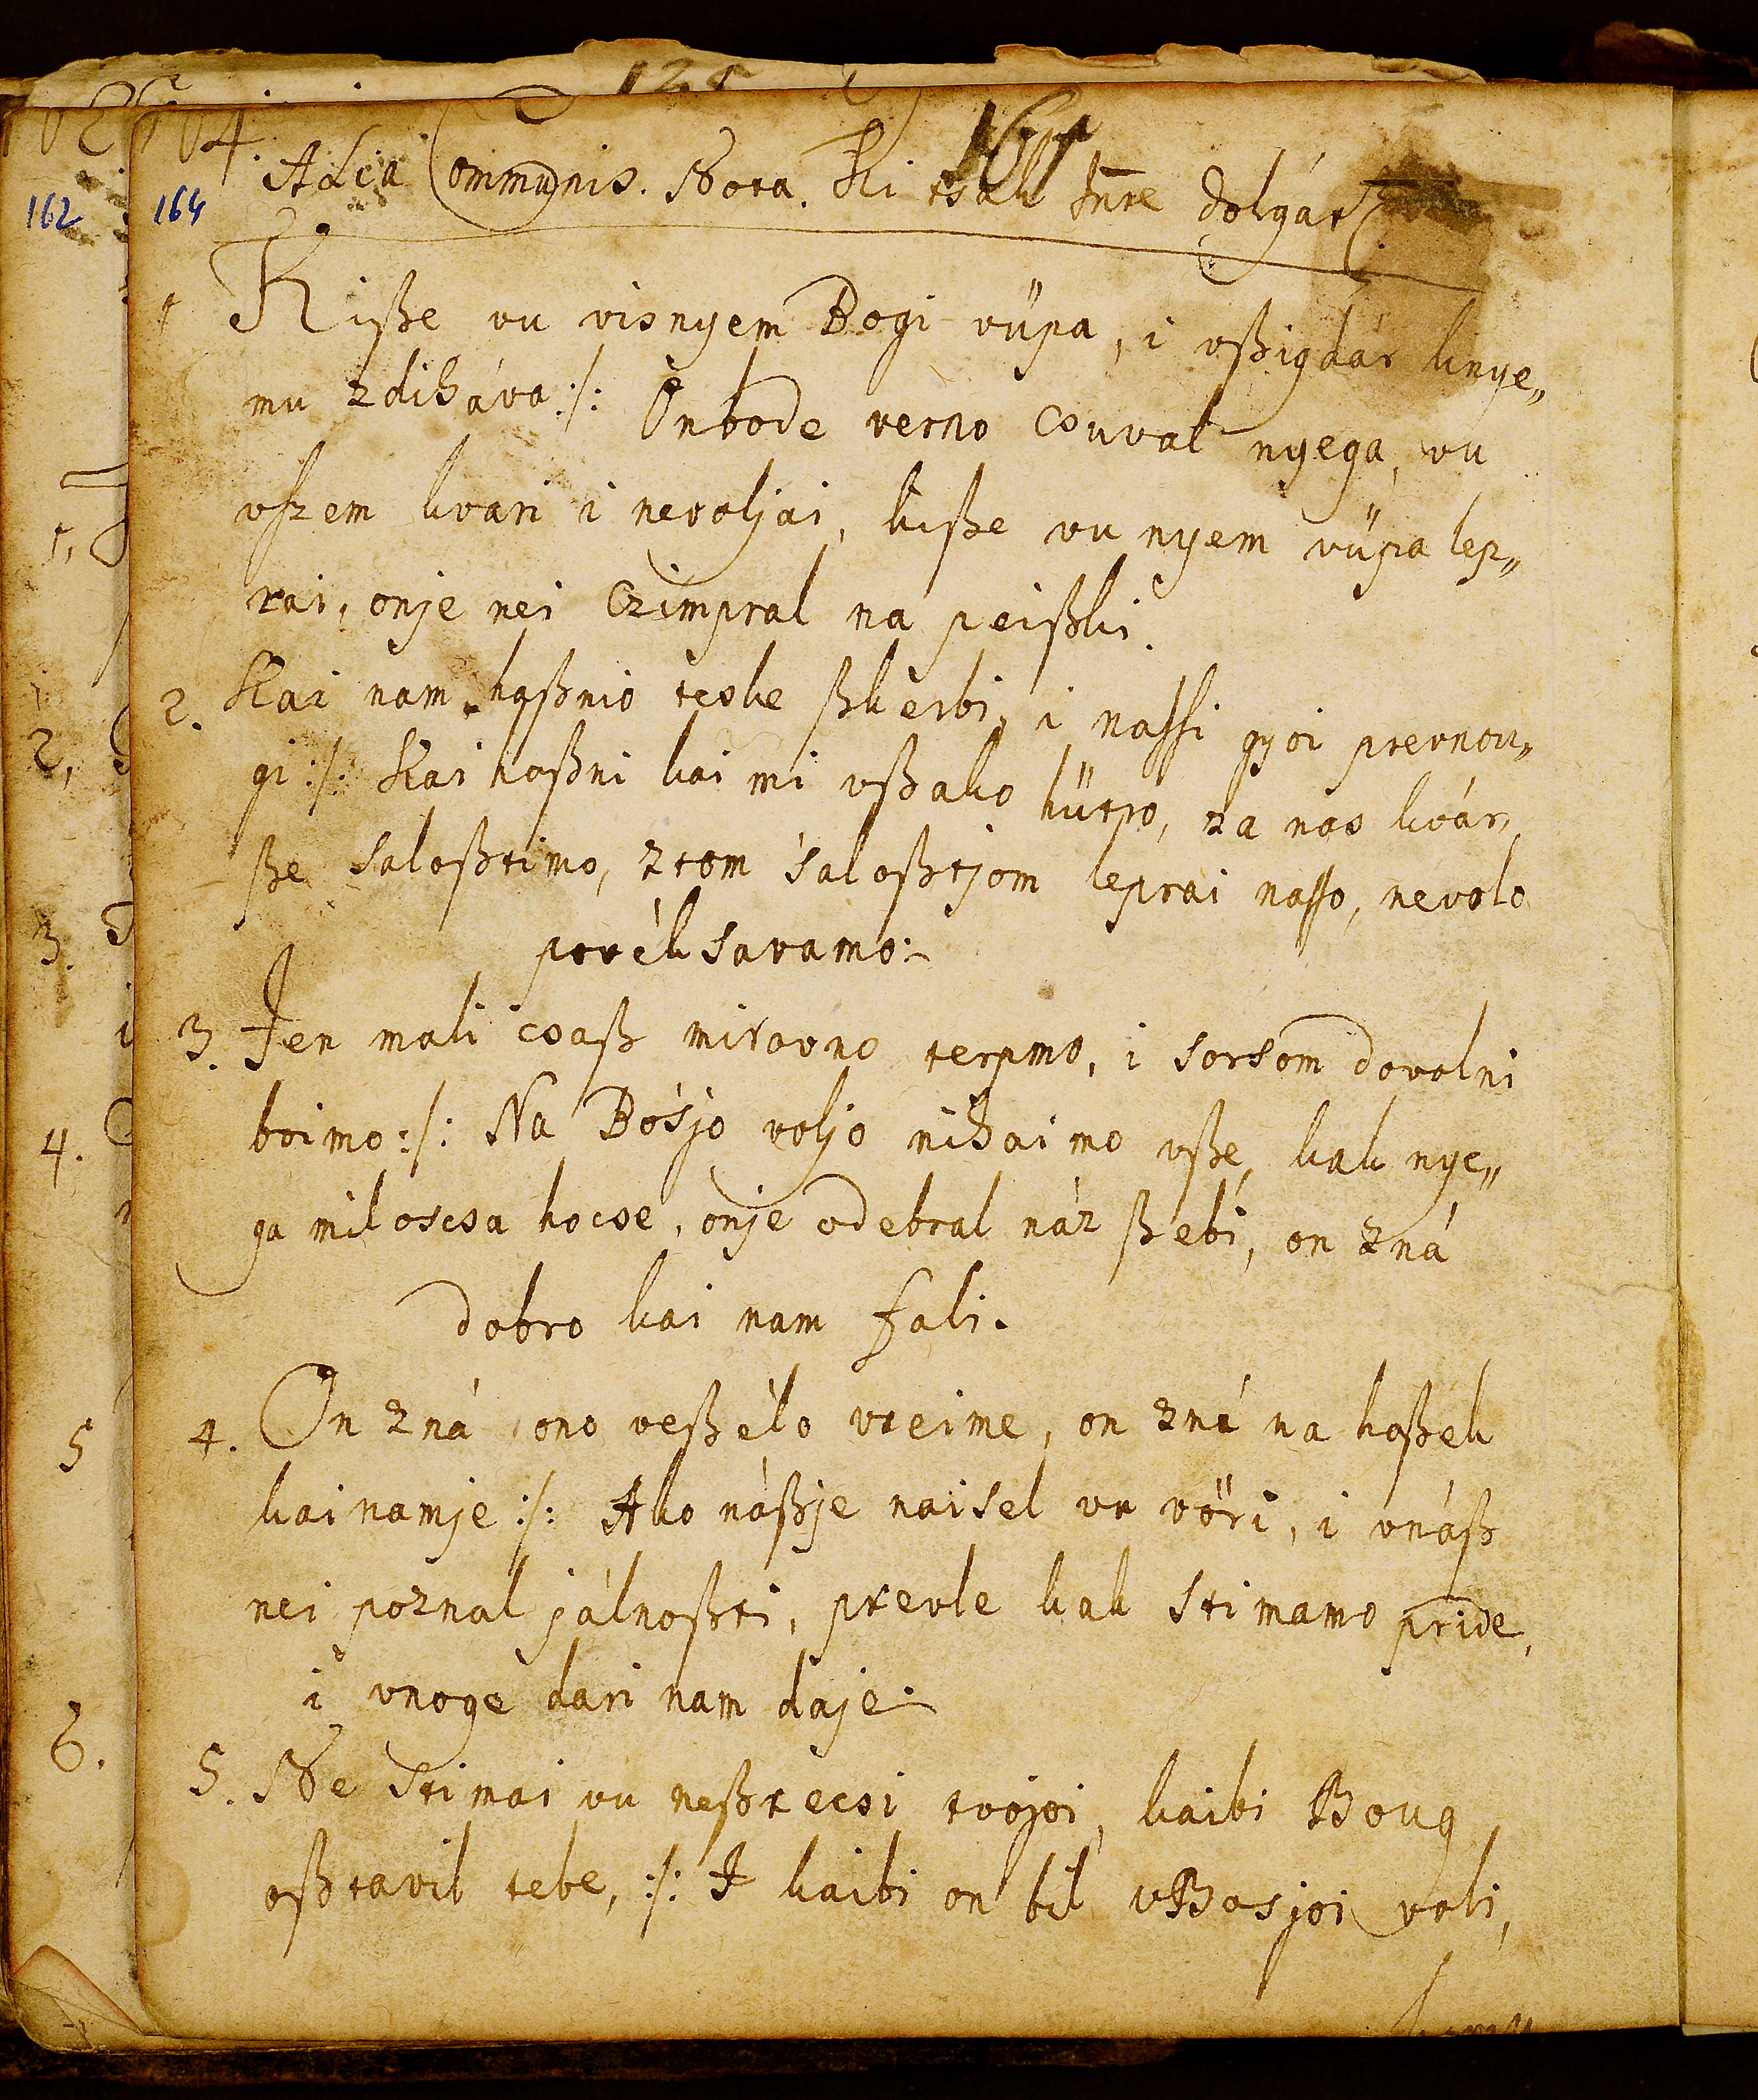 164.
161
162
164
Alia Communis. Nota. Ki csak Inte dolgát.
1 Kiſze vu visnyem Bogi vüpa, i vſzigdár knye„
mu zdiháva:/: On bode verno csuval nyega, vu
vſzem kvari i nevoljai, kiſze vu nyem vüpa lep„
rai, onje nei Czimpral na peiſzki.
2. Kai nam haſznio teske ſzkerbi, i naſſi gyoi prevnou„
gi:/: Kai haſzni kai mi vſzako hütro, za nas kvár
ſze saloſztimo, ztom saloſztjom leprai naſſo, nevolo
povéksavamo:
3. Jen mali csaſz mirovno terpmo, i sorsom dovolni
boimo:/: Na Bosjo voljo nihaimo vſze, kak nye„
ga miloscsa hocse, onje odebral náz ſzebi, on zná
dobro kai nam fali.
4. On zná ono veſzélo vreime, on zná na haſzek
kainamje:/: Ako náſzje naisel vu vöri, i vnáſz
nei poznal jálnoſzti, prevle kak stimamo pride,
i vnoge dari nam daje.
5. Ne stimai vu neſztecsi tvojoi, kaibi Boug
oſztavil tebe,:/: I kaibi on bil vBosjoi voli,
1,
2,
3.
4.
5
6.